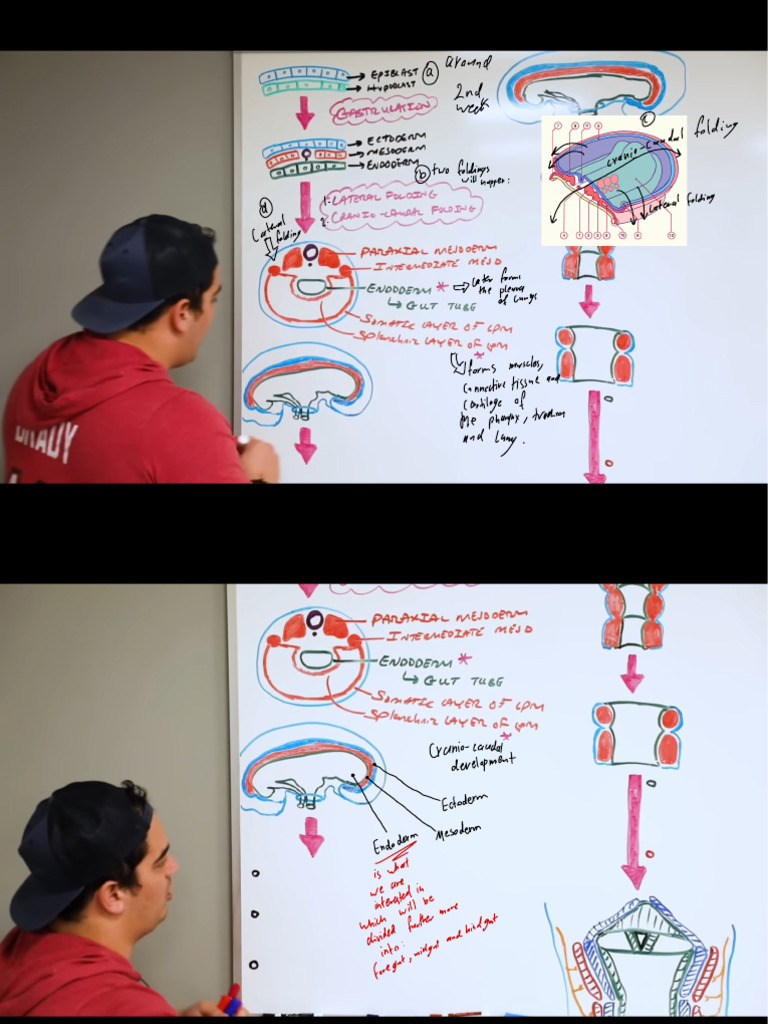 EPIBLAST
HYPOBLAST
a
around
2nd
week
GASTRULATION
ECTODERM
MESODERM
ENDODERM
b two foldings
will happen:
1- LATERAL FOLDING
2- CRANIO-CAUDAL FOLDING
c
cranio-caudal folding
Lateral folding
d
Lateral
folding
PARAXIAL MESODERM
INTERMEDIATE MESO
ENDODERM * later forms
the pleura
of lungs
GUT TUBE
SOMATIC LAYER OF LPM
Splanchnic LAYER OF LPM
*
forms muscles,
connective tissue and
cartilage of
the pharynx, trachea
and lung.
BRADY
PARAXIAL MESODERM
INTERMEDIATE MESO
ENDODERM *
GUT TUBE
SOMATIC LAYER OF LPM
Splanchnic LAYER OF LPM
*
Cranio-caudal
development
Ectoderm
Mesoderm
Endoderm
is what
we are
interested in
which will be
divided further more
into:
foregut, midgut and hindgut